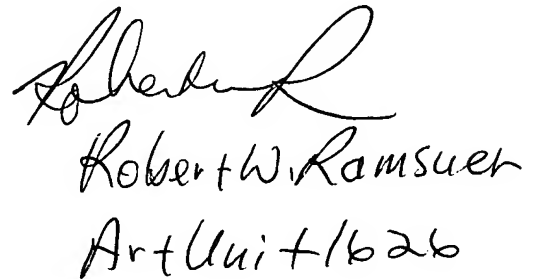 Robert W. Ramsuer
Art Unit 1626